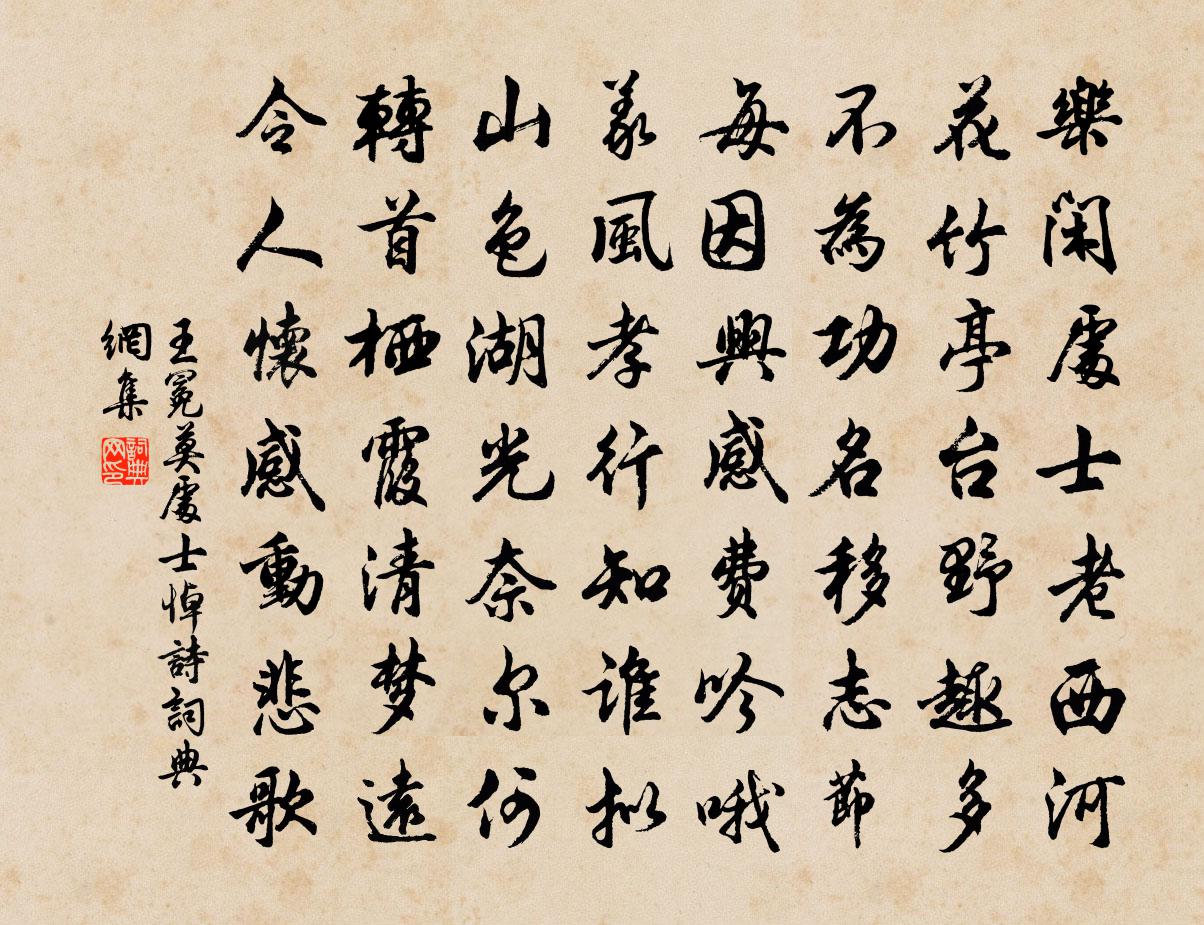 樂閑處士老西河
花竹亭台野趣多
不為功名移志節
每因興感費吟哦
義風孝行知誰拟
山色湖光奈尔何
轉首栖霞清梦遠
令人懷感動悲歌
王冕莫處士悼詩詞典
網集
詞典
网印